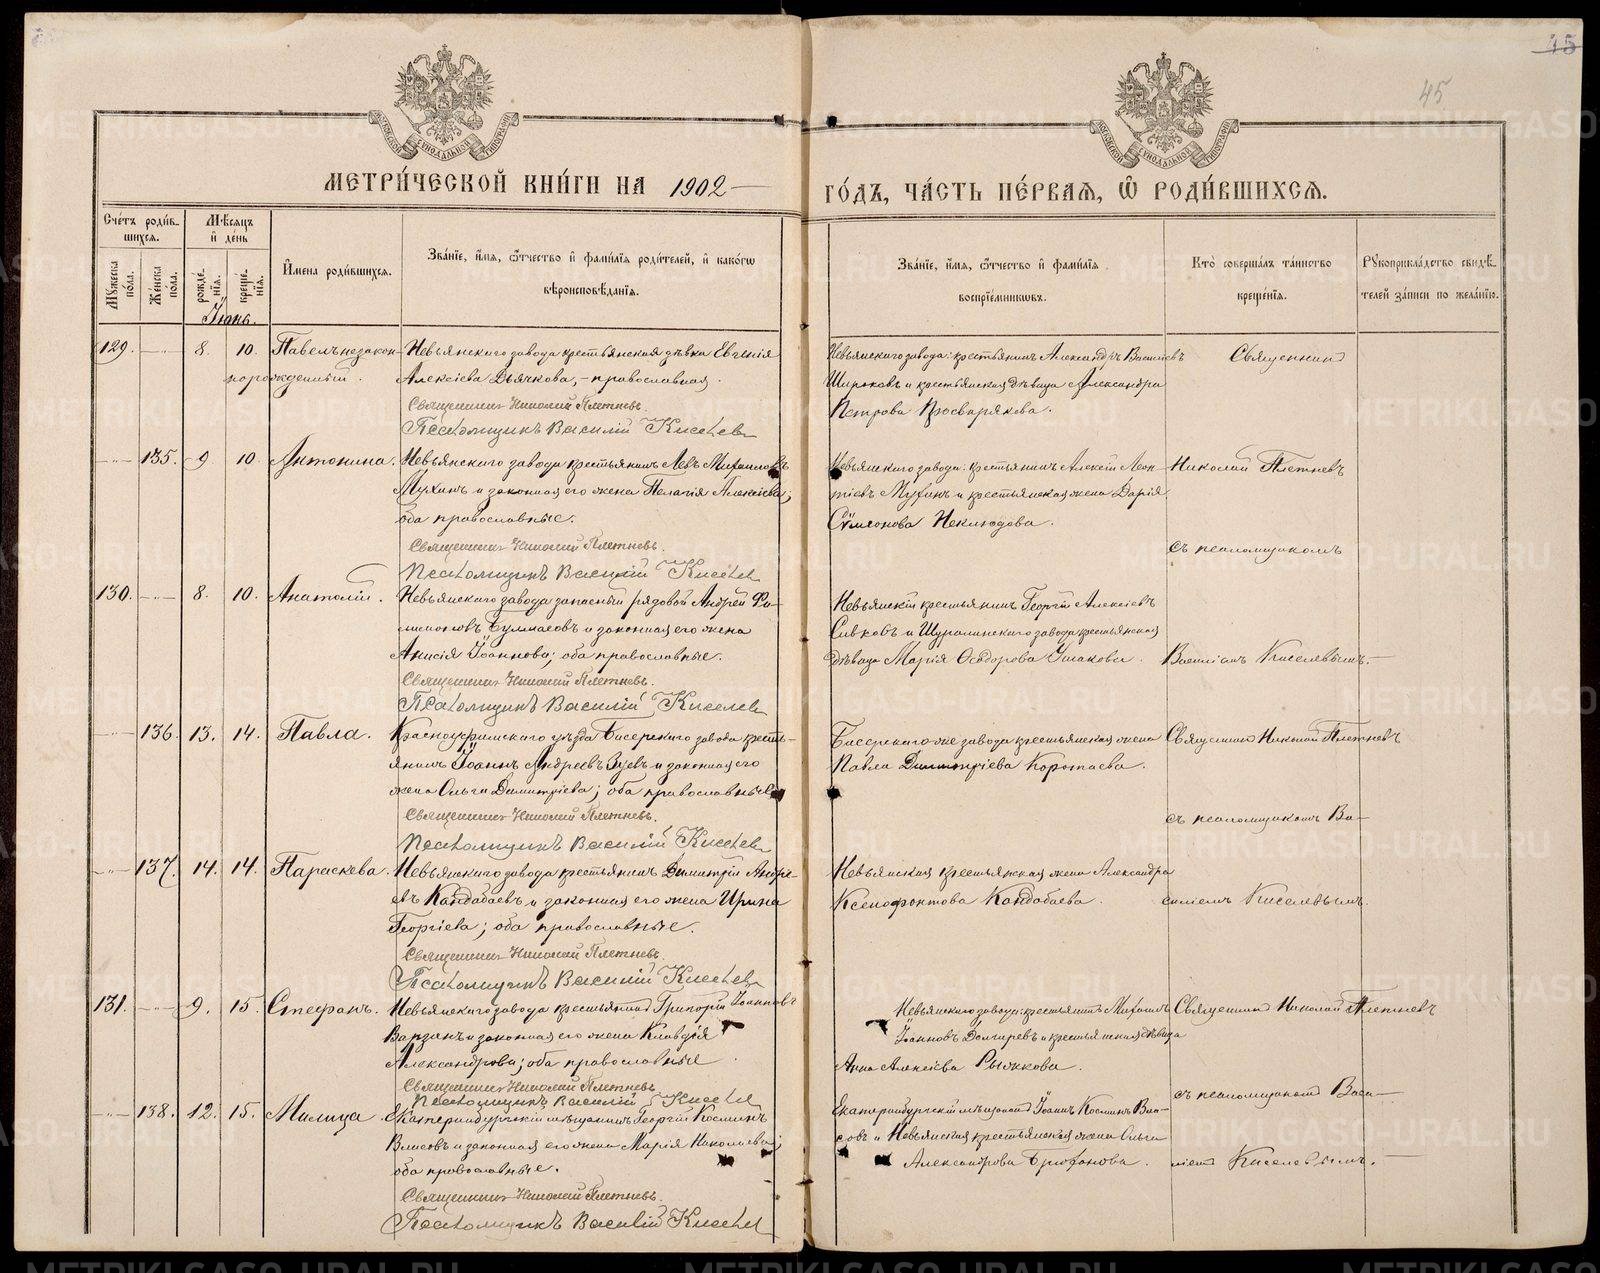 45
45
МОСКОВСКОЙ СѴНОДАЛЬНОЙ ТИПОГРАФІИ
МОСКОВСКОЙ СѴНОДАЛЬНОЙ ТИПОГРАФІИ
МЕТРИ́ЧЕСКОЙ КНИ́ГИ НА 1902 —
ГО́ДЪ, ЧА́СТЬ ПЕ́РВАЯ, Ѡ РОДИ́ВШИХСЯ.
Сче́тъ роди́в-
шихся.
Мужеска по́ла.
Же́нска по́ла.
Мѣ́сяцъ
и́ де́нь
рожде́нія.
креще́нія.
И́мена роди́вшихся.
Зва́ніе, и́мя, ѻ́тчество и́ фами́лія роди́телей, и́ како́гѡ
вѣроисповѣ́данія.
Зва́ніе, и́мя, ѻ́тчество и́ фами́лія
воспріе́мниковъ.
Кто̀ соверша́лъ та́инство
креще́нія.
Рукоприкла́дство свидѣ́-
телей за́писи по жела́нію.
Іюнь.
129. 8. 10. Павелъ незакон- Невьянскаго завода крестьянская дѣвка Евгенія
норожденный. Алексіева Дьячкова, - православная.
Священникъ Николай Плетневъ.
Псаломщикъ Василій Киселевъ
Невьянскаго завода: крестьянинъ Александръ Василіевъ
Широковъ и крестьянская дѣвица Александра
Петрова Просвирякова.
Священникъ
135. 9 10. Антонина. Невьянскаго завода крестьянинъ Левъ Михаиловъ
Мухинъ и законная его жена Пелагія Алексіева;
оба православные.
Священникъ Николай Плетневъ.
Псаломщикъ Василій Киселевъ
Невьянскаго завода: крестьянинъ Алексій Леон-
тіевъ Мухинъ и крестьянская жена Дарія
Сѵмеонова Неклюдова.
Николай Плетневъ
съ псаломщикомъ
130. 8. 10. Анатолій. Невьянскаго завода запасный рядовой Андрей Фи-
Анисія Іоаннова; оба православные.
Священникъ Николай Плетневъ.
Псаломщикъ Василій Киселевъ
Невьянскій крестьянинъ Георгій Алексіевъ
Сивковъ и Шуралинскаго завода крестьянская
дѣвица Марія Ѳеодорова Ушакова.
Василіемъ Киселевымъ.—
136. 13. 14. Павла. Красноуфимскаго уѣзда Бисерскаго завода кресть-
янинъ Іоаннъ Андреевъ Гуевъ и законная его
жена Ольга Димитріева; оба православные.
Священникъ Николай Плетневъ.
Псаломщикъ Василій Киселевъ
Бисерскаго же завода крестьянская жена
Павла Димитріева Коротаева.
Священникъ Николай Плетневъ
съ псаломщикомъ Ва-
137. 14. 14. Параскева. Невьянскаго завода крестьянинъ Димитрій Андре-
евъ Кандабаевъ и законная его жена Ирина
Георгіева; оба православные.
Священникъ Николай Плетневъ.
Псаломщикъ Василій Киселевъ
Невьянская крестьянская жена Александра
Ксенофонтова Кандабаева.
силіемъ Киселевымъ.
131. 9. 15. Стефанъ. Невьянскаго завода крестьянинъ Григорій Іоанновъ
Варзинъ и законная его жена Клавдія
Александрова; оба православные
Священникъ Николай Плетневъ
Псаломщикъ Василій Киселев
Невьянскаго завода: крестьянинъ Михаилъ
Іоанновъ Долгиревъ и крестьянская дѣвица
Анна Алексіева Рыжкова.
Священникъ Николай Плетневъ
съ псаломщикомъ Васи-
138. 12. 15. Милица. Екатеринбургскій мѣщанинъ Георгій Косминъ
Власовъ и законная его жена Марія Николаева;
оба православные.
Священникъ Николай Плетневъ.
Псаломщикъ Василій Киселев
Екатеринбургскій мѣщанинъ Іоаннъ Косминъ Вла-
совъ и Невьянская крестьянская жена Ольга
Александрова Трифонова.
ліемъ Киселевымъ.—
METRIKI.GASO-URAL.RU